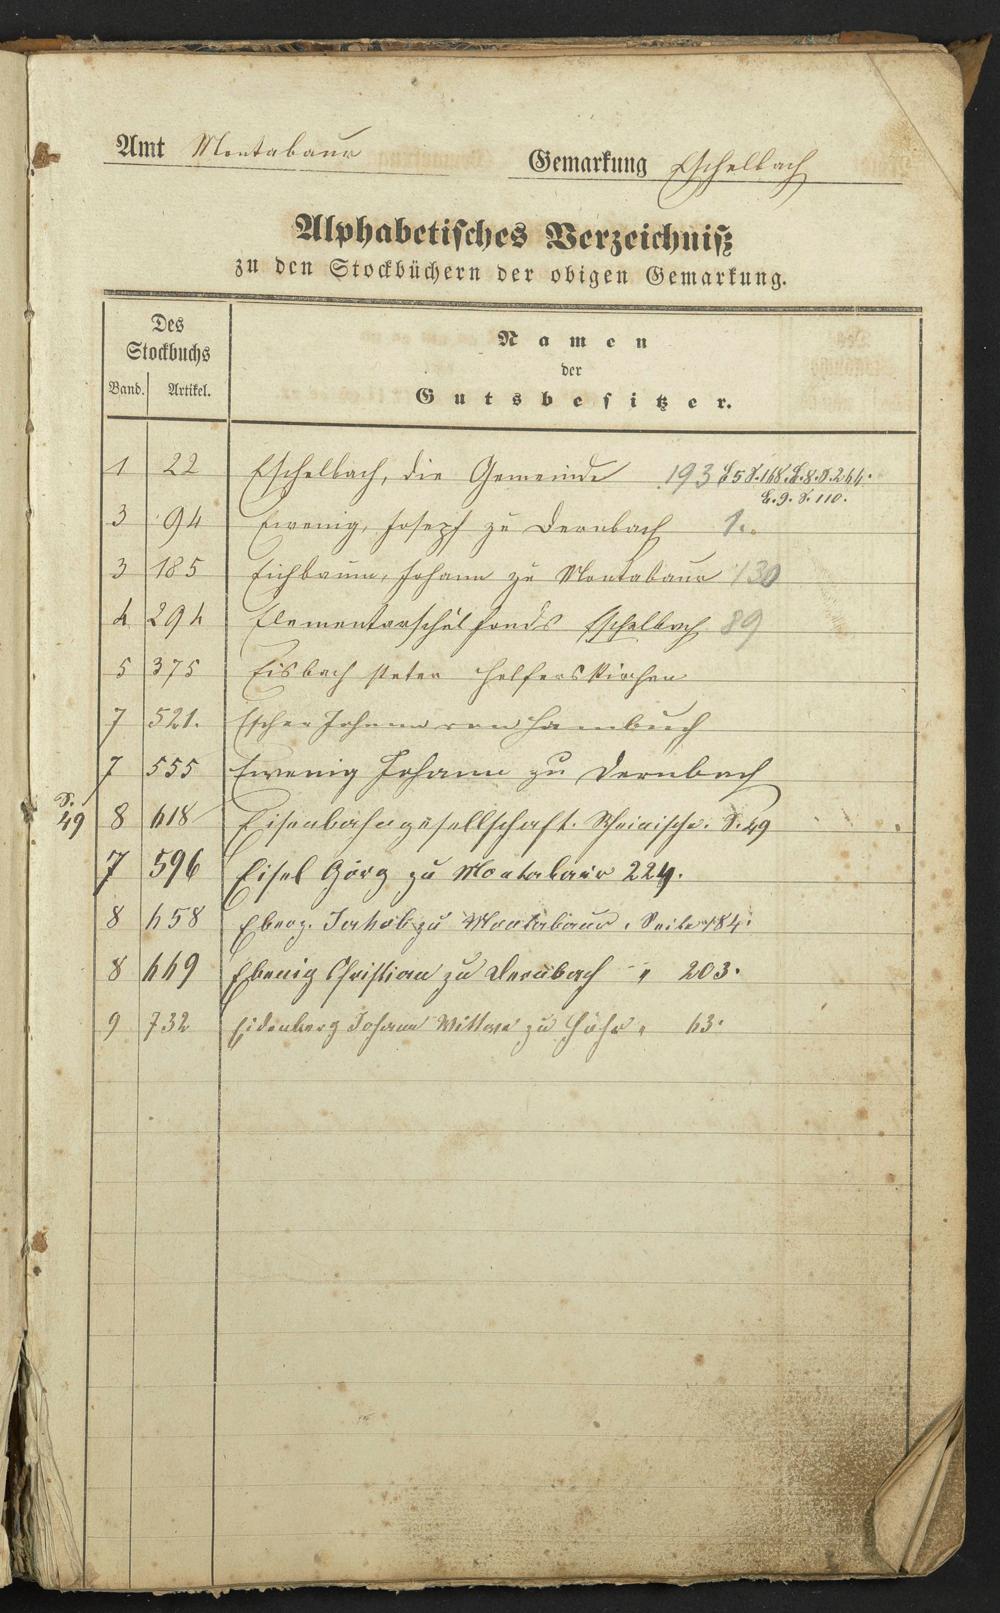 Amt Montabaur
Gemarkung Eschelbach
Alphabetisches Verzeichniß
zu den Stockbüchern der obigen Gemarkung.
Des Stockbuchs
Band. Artikel.
Namen
der
Gutsbesitzer.
1 22 Eschelbach, die Gemeinde 193 B.5 S.168. B.8. S.264.
B.9. S.110.
3 94 Ewenig, Joseph zu Dernbach 1.
3 185 Eichbaum, Johann zu Montabaur 130
4 294 Elementarschulfonds Eschelbach 89
5 375 Eisbach Peter Helferskirchen
7 521. Escher Johann von Hambuch
7 555 Ewenig Johann zu Dernbach
S. 49 8 618 Eisenbahngesellschaft. Rheinische. S. 49
7 596 Eisel Görg zu Montabaur 224.
8 658 Jakob zu Montabaur. Seite 184.
8 669 Ebenig Christian zu Dernbach " 203.
9 732 Johann Wittwe zu Höhr " 63.